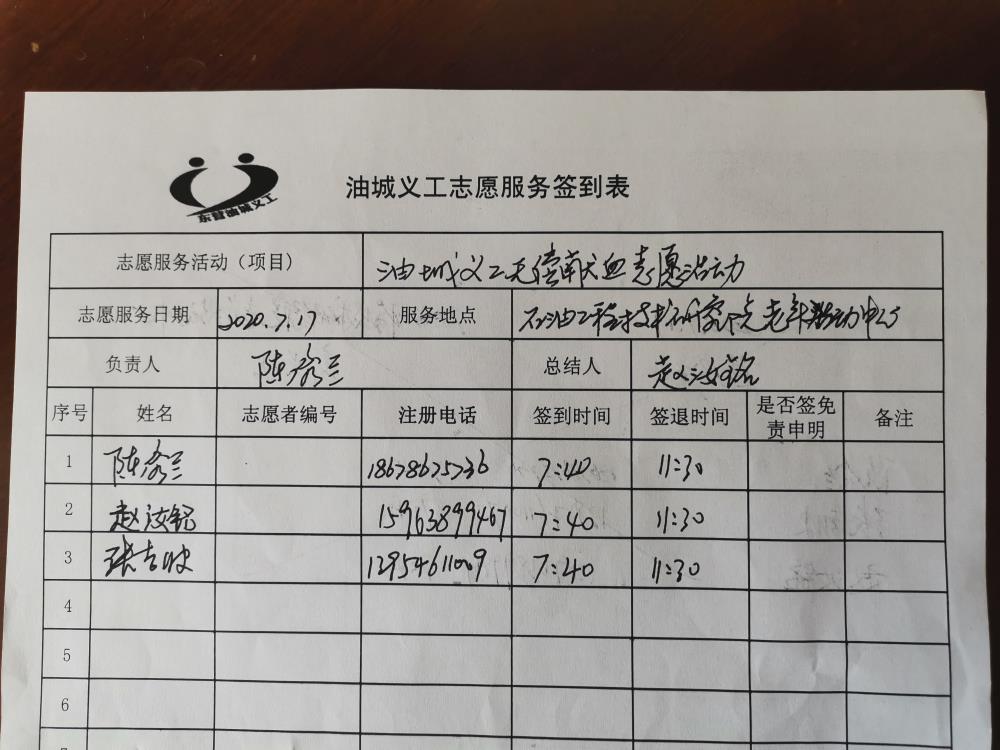 东营油城义工
油城义工志愿服务签到表
志愿服务活动（项目） 油城义工无偿献血志愿活动
志愿服务日期 2020.7.17 服务地点 石油工程技术研究院老年活动中心
负责人 陈 总结人 赵汝铭
序号 姓名 志愿者编号 注册电话 签到时间 签退时间 是否签免责申明 备注
1 陈 18678675736 7:40 11:30
2 赵汝铭 15963899467 7:40 11:30
3 张 7:40 11:30
4
5
6